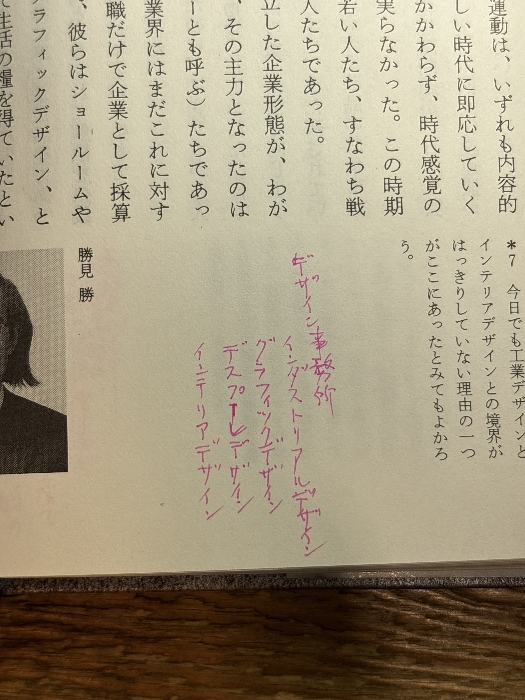 運動は、いずれも内容的
しい時代に即応していく
かかわらず、時代感覚の
実らなかった。この時期
若い人たち、すなわち戦
人たちであった。
立した企業形態が、わが
、その主力となったのは
ーとも呼ぶ）たちであっ
業界にはまだこれに対す
職だけで企業として採算
、彼らはショールームや
ラフィックデザイン、と
て生活の糧を得ていたとい
*7 今日でも工業デザインと
インテリアデザインとの境界が
はっきりしていない理由の一つ
がここにあったとみてもよかろ
う。
デザイン事務所
インダストリアルデザイン
グラフィックデザイン
デスプレデザイン
インテリアデザイン
勝見 勝